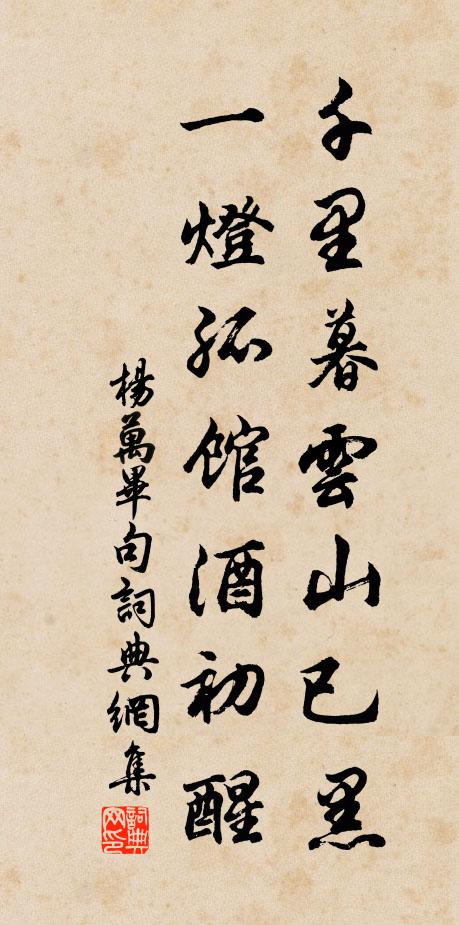 千里暮雲山已黑
一燈孤館酒初醒
楊萬畢句詞典網集
詞典网印